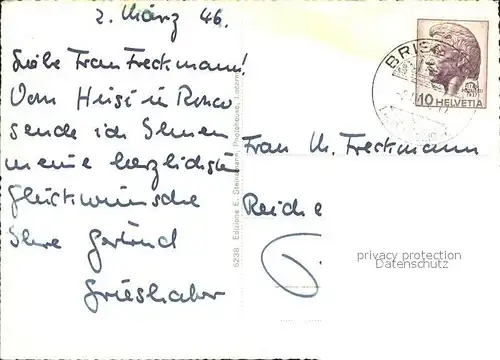 2. März 46.
Liebe Frau Freckmann!
Vom Heisi in Ronco
sende ich Ihnen
meine herzlichsten
Glückwünsche
Ihre Gertrud
Grieshaber
6238. Edizione E. Steinemann, Photohaus,
BRIS
10 HELVETIA
Frau M. Freckmann
Reiche
privacy protection
Datenschutz